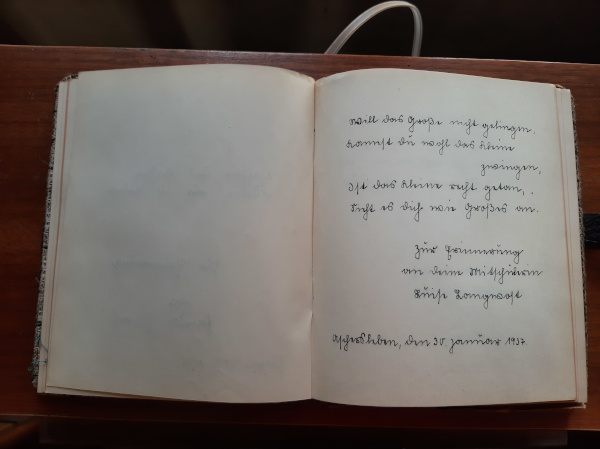 Will das Große nicht gelingen.
Kannst du wohl das Kleine
zwingen,
Ist das Kleine recht getan,
Sieht es dich wie Großes an.
Zur Erinnerung
an deine Mitschülerin
Luise Langwost
Aschersleben, den 30. Januar 1937.